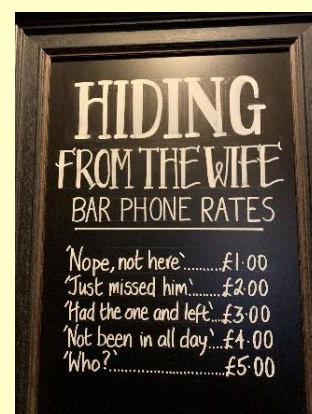 HIDING
FROM THE WIFE
BAR PHONE RATES
'Nope, not here'.........£1·00
'Just missed him'.......£2·00
'Had the one and left'...£3·00
'Not been in all day'...£4·00
'Who?'.............................£5·00